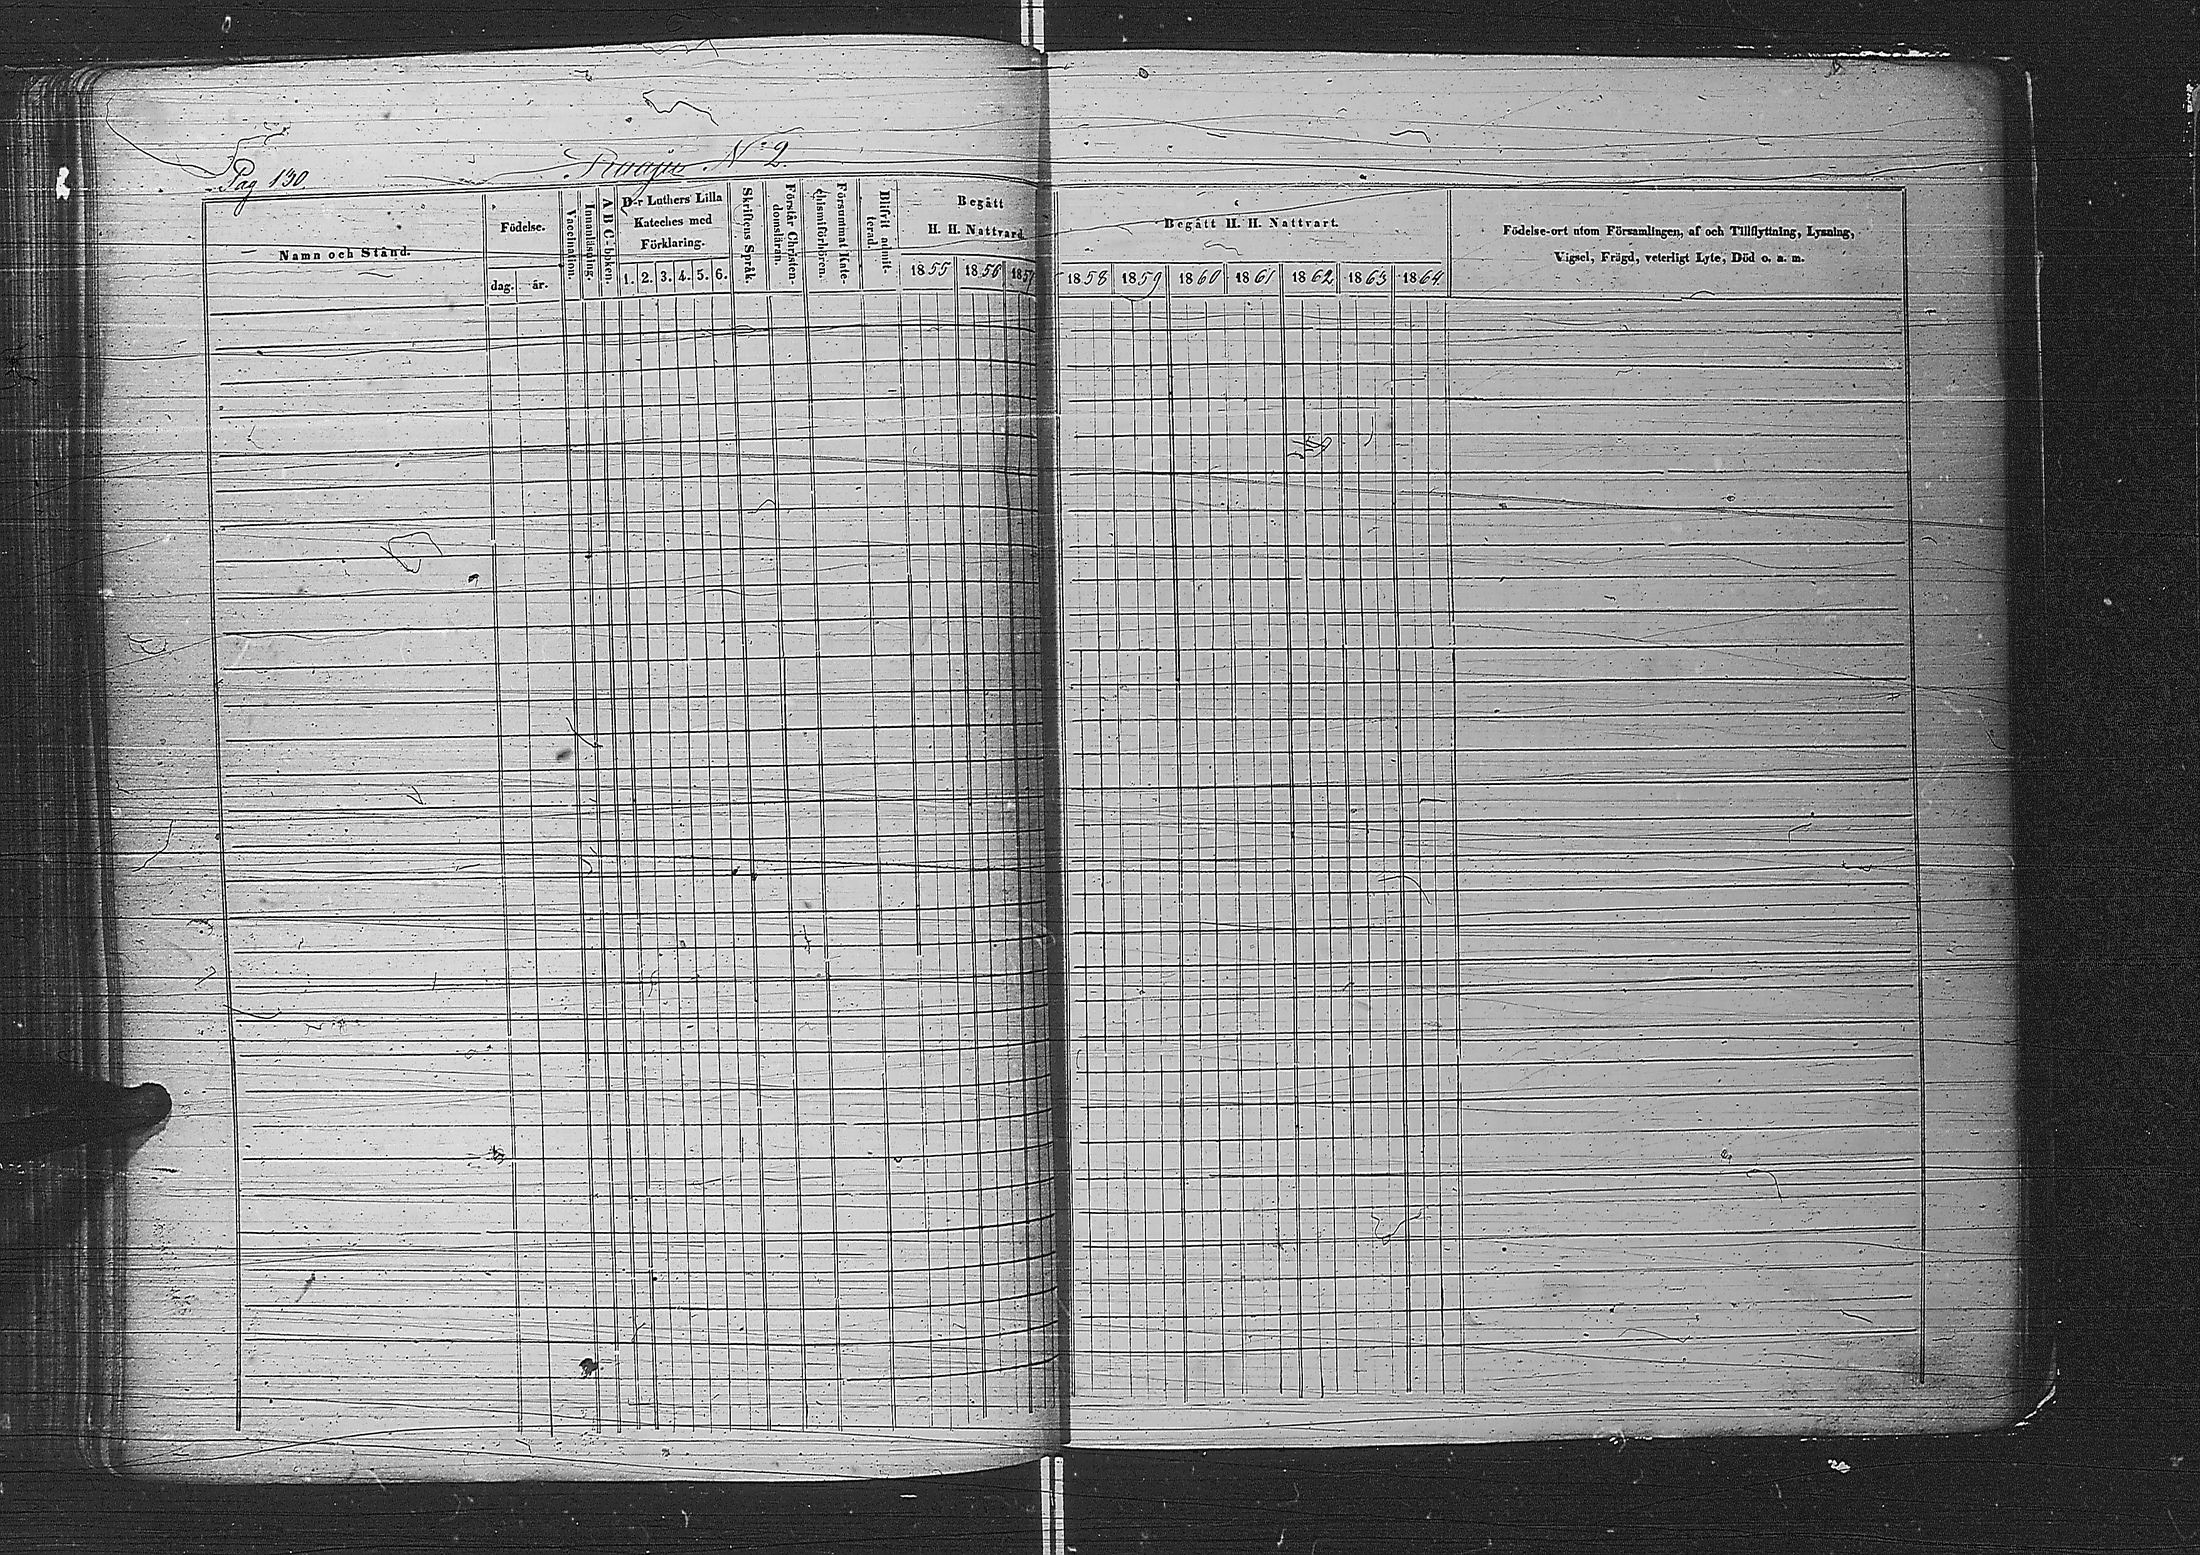 Pag 130.
Raaju N:o 2.
Namn och Stånd.
Födelse.
dag.
år.
Vaccination.
Innanläsning.
A B C-boken.
D-r Luthers Lilla
Kateches med
Förklaring.
1. 2. 3. 4. 5. 6.
Skriftens Språk.
Förstår Christen-
domsläran.
Försummat Kate-
chismiförhören.
Blifvit admit-
terad.
Begått
H. H. Nattvard
1855 1856 1857
Begått H. H. Nattvart.
1858 1859 1860 1861 1862 1863 1864
Födelse-ort utom Församlingen, af och Tillflyttning, Lysning,
Vigsel, Frägd, veterligt Lyte, Död o. a. m.